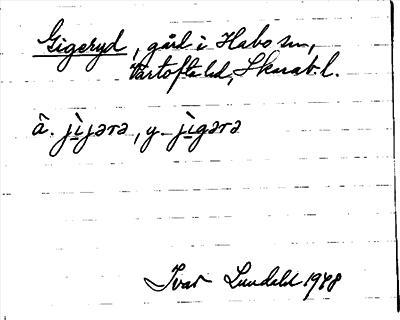 Gigeryd, gård i Habo sn,
Vartofta hd, Skarab. l.
ä. jìjərə, y. jìgərə
Ivar Lundahl 1948